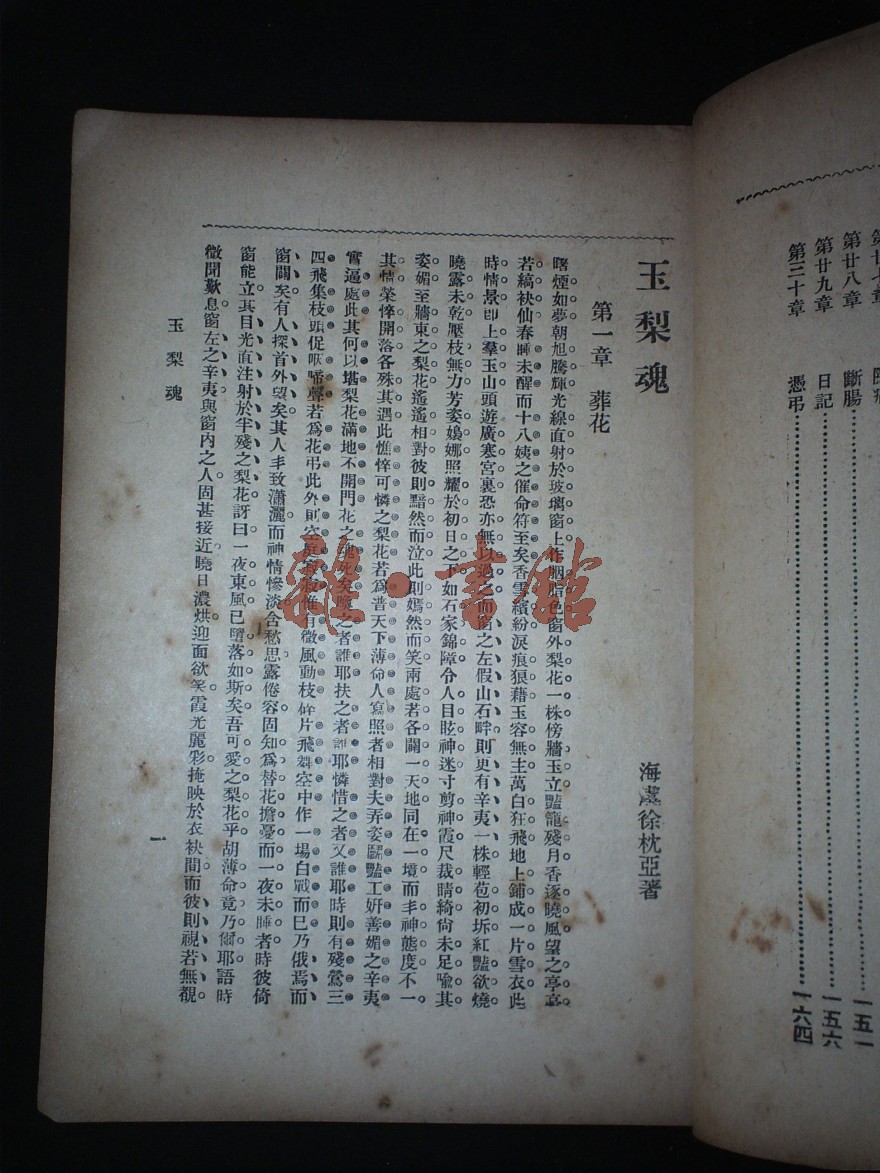 第廿八章 斷腸 一五一
第廿九章 日記 一五六
第三十章 憑弔 一六四
玉梨魂
海虞徐枕亞著
第一章 葬花
曙煙如夢朝旭騰輝光線直射於玻璃窗上作胭脂色窗外梨花一株傍牆玉立豔籠殘月香逐曉風望之亭亭
若縞袂仙春睡未醒而十八姨之催命符至矣香雪繽紛淚痕狼藉玉容無主萬白狂飛地上鋪成一片雪衣此
時情景即上羣玉山頭遊廣寒宮裏恐亦無以過之而窗之左假山石畔則更有辛夷一株輕苞初坼紅豔欲燒
曉露未乾壓枝無力芳姿嬝娜照耀於初日之下如石家錦障令人目眩神迷寸剪神霞尺裁晴綺尙未足喩其
姿媚至牆東之梨花遙遙相對彼則黯然而泣此則嫣然而笑兩處若各闢一天地同在一境而丰神態度不一
其情榮悴開落各殊其遇此憔悴可憐之梨花若爲普天下薄命人寫照者相對夫弄姿鬬豔工妍善媚之辛夷
實逼處此其何以堪梨花滿地不開門花之魂死矣喚之者誰耶扶之者誰耶憐惜之者又誰耶時則有殘鶯三
四飛集枝頭促呶啼聲若爲花弔此外則空庭寂寂惟有微風動枝碎片飛舞空中作一場白戰而已乃俄焉而
窗闢矣有人探首外望矣其人丰致瀟灑而神情慘淡含愁思露倦容固知爲替花擔憂而一夜未睡者時彼倚
窗能立其目光直注射於半殘之梨花訝曰一夜東風已墮落如斯矣吾可愛之梨花乎胡薄命竟乃爾耶語時
微聞歎息窗左之辛夷與窗內之人固甚接近曉日濃烘迎面欲笑霞光麗彩掩映於衣袂間而彼則視若無覩
玉梨魂
一
雜·書館